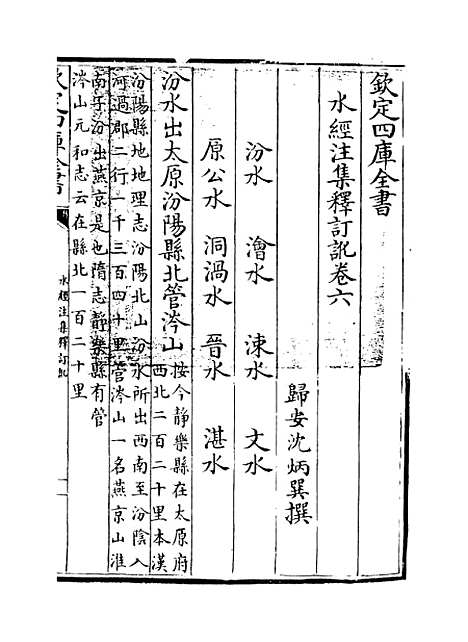 欽定四庫全書
水經注集釋訂訛卷六
歸安沈炳巽撰
汾水 澮水 涑水 文水
原公水 洞渦水 晉水 湛水
汾水出太原汾陽縣北管涔山
按今静樂縣在太原府
西北二百二十里本漢
汾陽縣地地理志汾陽北山汾水所出西南至汾隂入
河過郡二行一千三百四十里管涔山一名燕京山淮
南子汾出燕京是也隋志静樂縣有管
涔山元和志云在縣北一百二十里
欽定四庫全書
水經注集釋訂訛
一